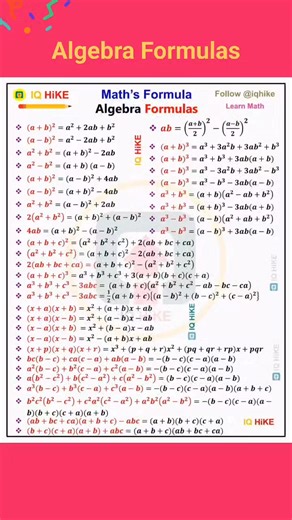 Algebra Formulas
IQ HiKE
Math's Formula
Algebra Formulas
Follow @iqhike
Learn Math
❖ (a + b)² = a² + 2ab + b²
❖ (a − b)² = a² − 2ab + b²
❖ a² + b² = (a + b)² − 2ab
❖ a² − b² = (a + b)(a − b)
❖ (a + b)² = (a − b)² + 4ab
❖ (a − b)² = (a + b)² − 4ab
❖ a² + b² = (a − b)² + 2ab
❖ 2(a² + b²) = (a + b)² + (a − b)²
❖ 4ab = (a + b)² − (a − b)²
❖ ab = ((a+b)/2)² − ((a−b)/2)²
❖ (a + b)³ = a³ + 3a²b + 3ab² + b³
❖ (a + b)³ = a³ + b³ + 3ab(a + b)
❖ (a − b)³ = a³ − 3a²b + 3ab² − b³
❖ (a − b)³ = a³ − b³ − 3ab(a − b)
❖ a³ + b³ = (a + b)(a² − ab + b²)
❖ a³ + b³ = (a + b)³ − 3ab(a + b)
❖ a³ − b³ = (a − b)(a² + ab + b²)
❖ a³ − b³ = (a − b)³ + 3ab(a − b)
❖ (a + b + c)² = (a² + b² + c²) + 2(ab + bc + ca)
❖ (a² + b² + c²) = (a + b + c)² − 2(ab + bc + ca)
❖ 2(ab + bc + ca) = (a + b + c)² − (a² + b² + c²)
❖ (a + b + c)³ = a³ + b³ + c³ + 3(a + b)(b + c)(c + a)
❖ a³ + b³ + c³ − 3abc = (a + b + c)(a² + b² + c² − ab − bc − ca)
❖ a³ + b³ + c³ − 3abc = ½(a + b + c)[(a − b)² + (b − c)² + (c − a)²]
❖ (x + a)(x + b) = x² + (a + b)x + ab
❖ (x + a)(x − b) = x² + (a − b)x − ab
❖ (x − a)(x + b) = x² + (b − a)x − ab
❖ (x − a)(x − b) = x² − (a + b)x + ab
❖ (x + p)(x + q)(x + r) = x³ + (p + q + r)x² + (pq + qr + rp)x + pqr
❖ bc(b − c) + ca(c − a) + ab(a − b) = −(b − c)(c − a)(a − b)
❖ a²(b − c) + b²(c − a) + c²(a − b) = −(b − c)(c − a)(a − b)
❖ a(b² − c²) + b(c² − a²) + c(a² − b²) = (b − c)(c − a)(a − b)
❖ a³(b − c) + b³(c − a) + c³(a − b) = −(b − c)(c − a)(a − b)(a + b + c)
❖ b²c²(b² − c²) + c²a²(c² − a²) + a²b²(a² − b²) = −(b − c)(c − a)(a −
b)(b + c)(c + a)(a + b)
❖ (ab + bc + ca)(a + b + c) − abc = (a + b)(b + c)(c + a)
❖ (b + c)(c + a)(a + b) + abc = (a + b + c)(ab + bc + ca)
IQ HiKE
IQ HiKE
IQ HiKE
IQ HiKE